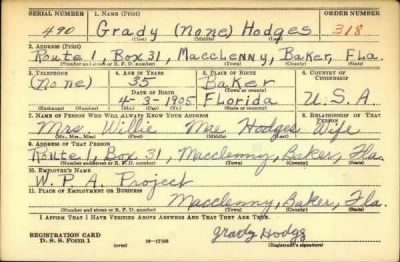 SERIAL NUMBER 1. NAME (Print) ORDER NUMBER
490 Grady (none) Hodges 318
(First) (Middle) (Last)
2. ADDRESS (Print)
Route 1, Box 31, Macclenny, Baker, Fla.
(Number and street or R. F. D. number) (Town) (County) (State)
3. TELEPHONE 4. AGE IN YEARS 5. PLACE OF BIRTH 6. COUNTRY OF CITIZENSHIP
(None) 35 Baker
DATE OF BIRTH (Town or county)
4-3-1905 Florida U.S.A.
(Exchange) (Number) (Mo.) (Day) (Yr.) (State or country)
7. NAME OF PERSON WHO WILL ALWAYS KNOW YOUR ADDRESS 8. RELATIONSHIP OF THAT PERSON
Mrs. Willie Mae Hodges Wife
(Mr., Mrs., Miss) (First) (Middle) (Last)
9. ADDRESS OF THAT PERSON
Route 1, Box 31, Macclenny, Baker, Fla.
(Number and street or R. F. D. number) (Town) (County) (State)
10. EMPLOYER'S NAME
W.P.A. Project
11. PLACE OF EMPLOYMENT OR BUSINESS
Macclenny, Baker, Fla.
(Number and street or R. F. D. number) (Town) (County) (State)
I AFFIRM THAT I HAVE VERIFIED ABOVE ANSWERS AND THAT THEY ARE TRUE.
REGISTRATION CARD Grady Hodgs
D. S. S. Form 1 (over) 16-17105 (Registrant's signature)